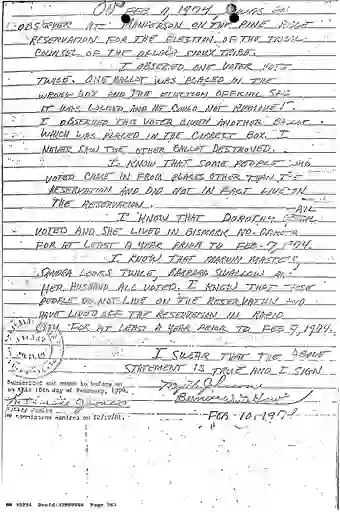 ON FEB 7, 1974 I WAS AN
OBSERVER AT MANDERSON ON THE PINE RIDGE
RESERVATION FOR THE ELECTION OF THE TRIBAL
COUNSEL OF THE OGLALA SIOUX TRIBE.
I OBSERVED ONE VOTER VOTE
TWICE. ONE BALLOT WAS PLACED IN THE
WRONG BOX AND THE ELECTION OFFICIAL SAID
IT WAS LOCKED AND HE COULD NOT REMOVE IT.
I OBSERVED THIS VOTER GIVEN ANOTHER BALLOT
WHICH WAS PLACED IN THE CORRECT BOX. I
NEVER SAW THE OTHER BALLOT DESTROYED.
I KNOW THAT SOME PEOPLE WHO
VOTED CAME IN FROM PLACES OTHER THAN THE
RESERVATION AND DID NOT IN FACT LIVE ON
THE RESERVATION.
I KNOW THAT DOROTHY
VOTED AND SHE LIVED IN BISMARK NO. DAKOTA
FOR AT LEAST A YEAR PRIOR TO FEB. 7, 1974.
I KNOW THAT
TWICE, BARBARA SWALLOW AND
HER HUSBAND ALL VOTED. I KNOW THAT THESE
PEOPLE DO NOT LIVE ON THE RESERVATION AND
HAVE LIVED OFF THE RESERVATION IN RAPID
CITY FOR AT LEAST A YEAR PRIOR TO FEB 7, 1974.
I SWEAR THAT THE ABOVE
STATEMENT IS TRUE AND I SIGN
Subscribed and sworn to before me
on this 10th day of February, 1974.
FEB. 10, 1974
My commission expires on
Page 261